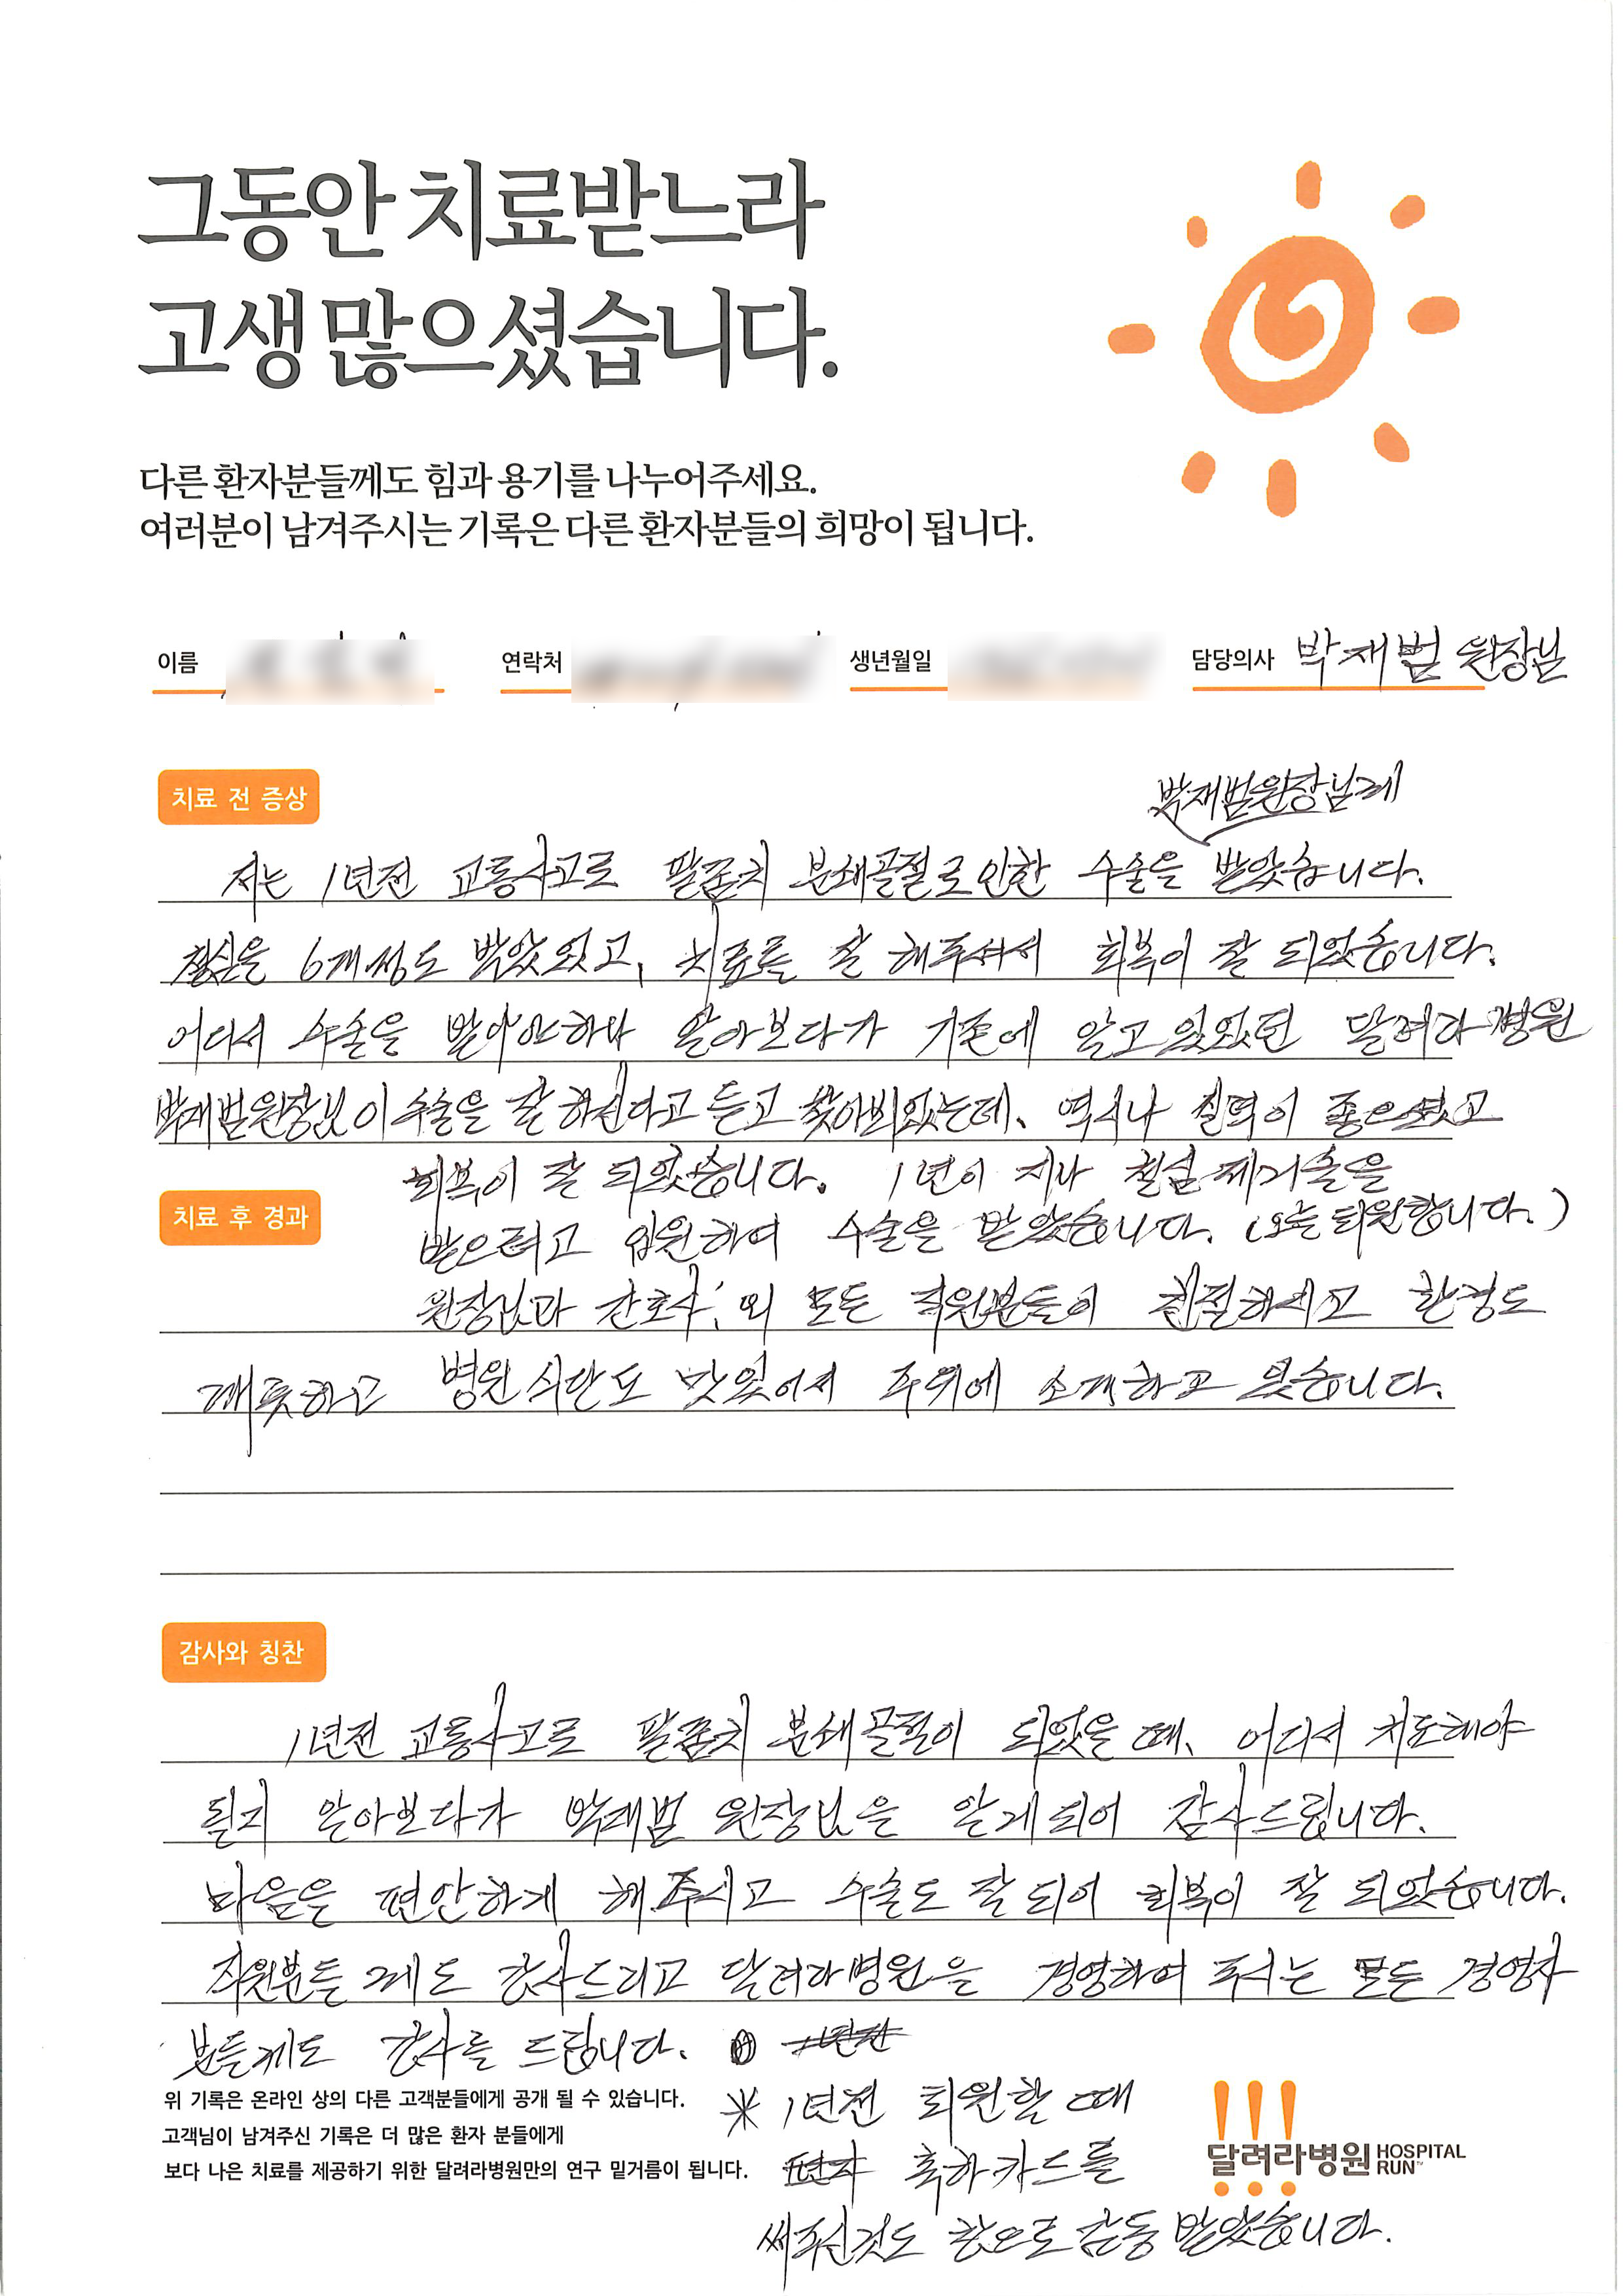 그동안 치료받느라
고생 많으셨습니다.
다른 환자분들께도 힘과 용기를 나누어주세요.
여러분이 남겨주시는 기록은 다른 환자분들의 희망이 됩니다.
이름 연락처 생년월일 담당의사 박재범 원장님
치료 전 증상
박재범원장님께
저는 1년전 교통사고로 팔꿈치 분쇄골절로 인한 수술을 받았습니다.
철심을 6개정도 박았었고, 치료를 잘 해주셔서 회복이 잘 되었습니다.
어디서 수술을 받아야하나 알아보다가 기존에 알고 있었던 달려라병원
박재범원장님이 수술을 잘 하신다고 듣고 찾아뵈었는데, 역시나 실력이 좋으셨고
회복이 잘 되었습니다. 1년이 지나 철심제거술을
치료 후 경과
받으려고 입원하여 수술을 받았습니다. (오늘 퇴원합니다.)
원장님과 간호사, 외 모든 직원분들이 친절하시고 환경도
깨끗하고 병원식단도 맛있어서 주위에 소개하고 있습니다.
감사와 칭찬
1년전 교통사고로 팔꿈치 분쇄골절이 되었을 때, 어디서 치료해야
될지 알아보다가 박재범 원장님을 알게되어 감사드립니다.
마음을 편안하게 해주시고 수술도 잘 되어 회복이 잘 되었습니다.
직원분들께도 감사드리고 달려라병원을 경영하여 주시는 모든 경영자
분들께도 감사를 드립니다.
위 기록은 온라인 상의 다른 고객분들에게 공개 될 수 있습니다.
고객님이 남겨주신 기록은 더 많은 환자 분들에게
보다 나은 치료를 제공하기 위한 달려라병원만의 연구 밑거름이 됩니다.
※ 1년전 퇴원할 때
축하카드를
써주신것도 참으로 감동 받았습니다.
달려라병원 HOSPITAL RUN